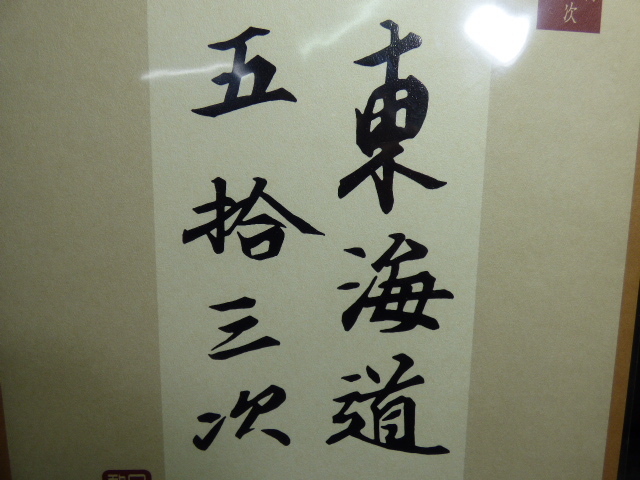 東海道
五拾三次
次